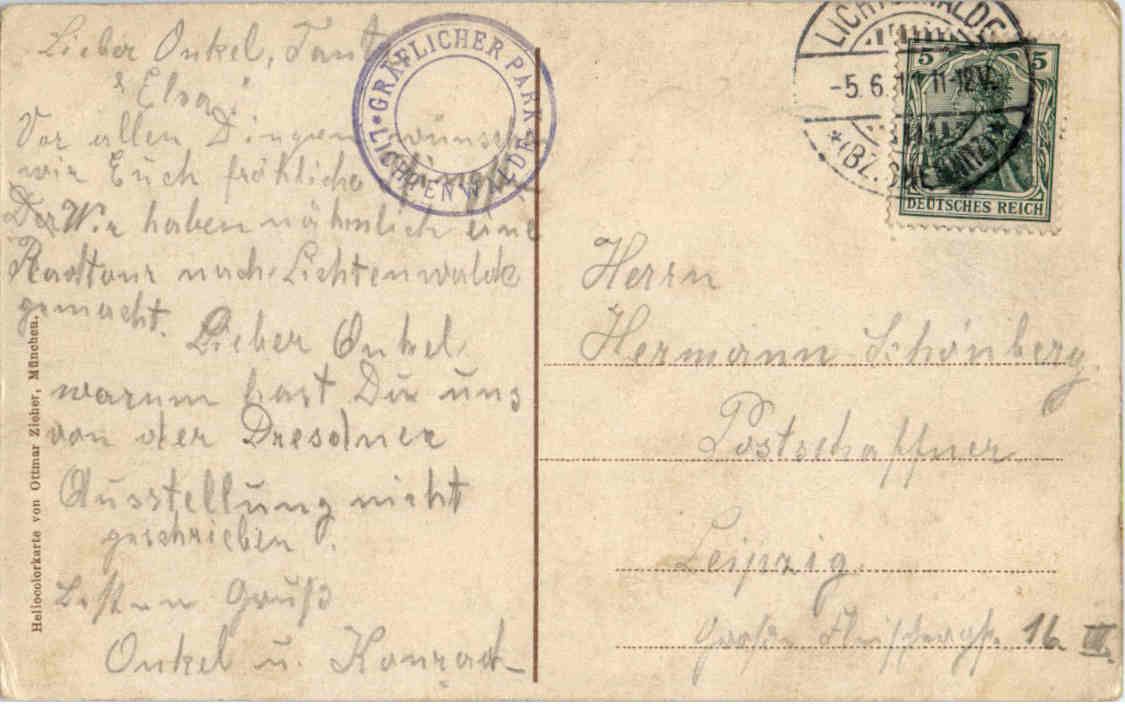 Lieber Onkel, Tante
& Elsa!
Vor allen Dingen wünschen
wir Euch fröhliche
Wir haben nähmlich eine
Radtour nach Lichtenwalde
gemacht.
Lieber Onkel,
warum hast Du uns
von der Dresdner
Ausstellung nicht
geschrieben?
Besten Gruß
Onkel u. Konrad
Heliocolorkarte von Ottmar Zieher, München.
*GRÄFLICHER PARK*
LICHTENWALDE
LICHTENWALDE
-5.6.11 11-12V.
*(BZ. CHEMNITZ)*
5 5
DEUTSCHES REICH
Herrn
Hermann Schönberg.
Postschaffner
Leipzig.
Große Fleischergasse 16 III.